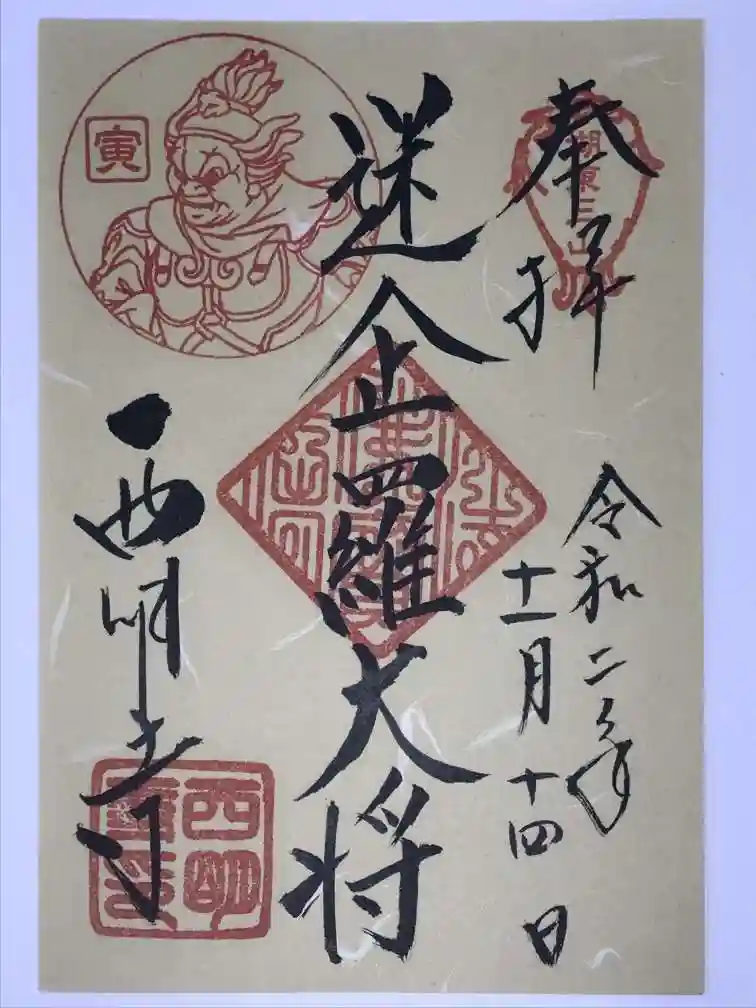 奉拝
湖東三山
令和二年
十一月十四日
迷企羅大将
寅
西明寺
西明